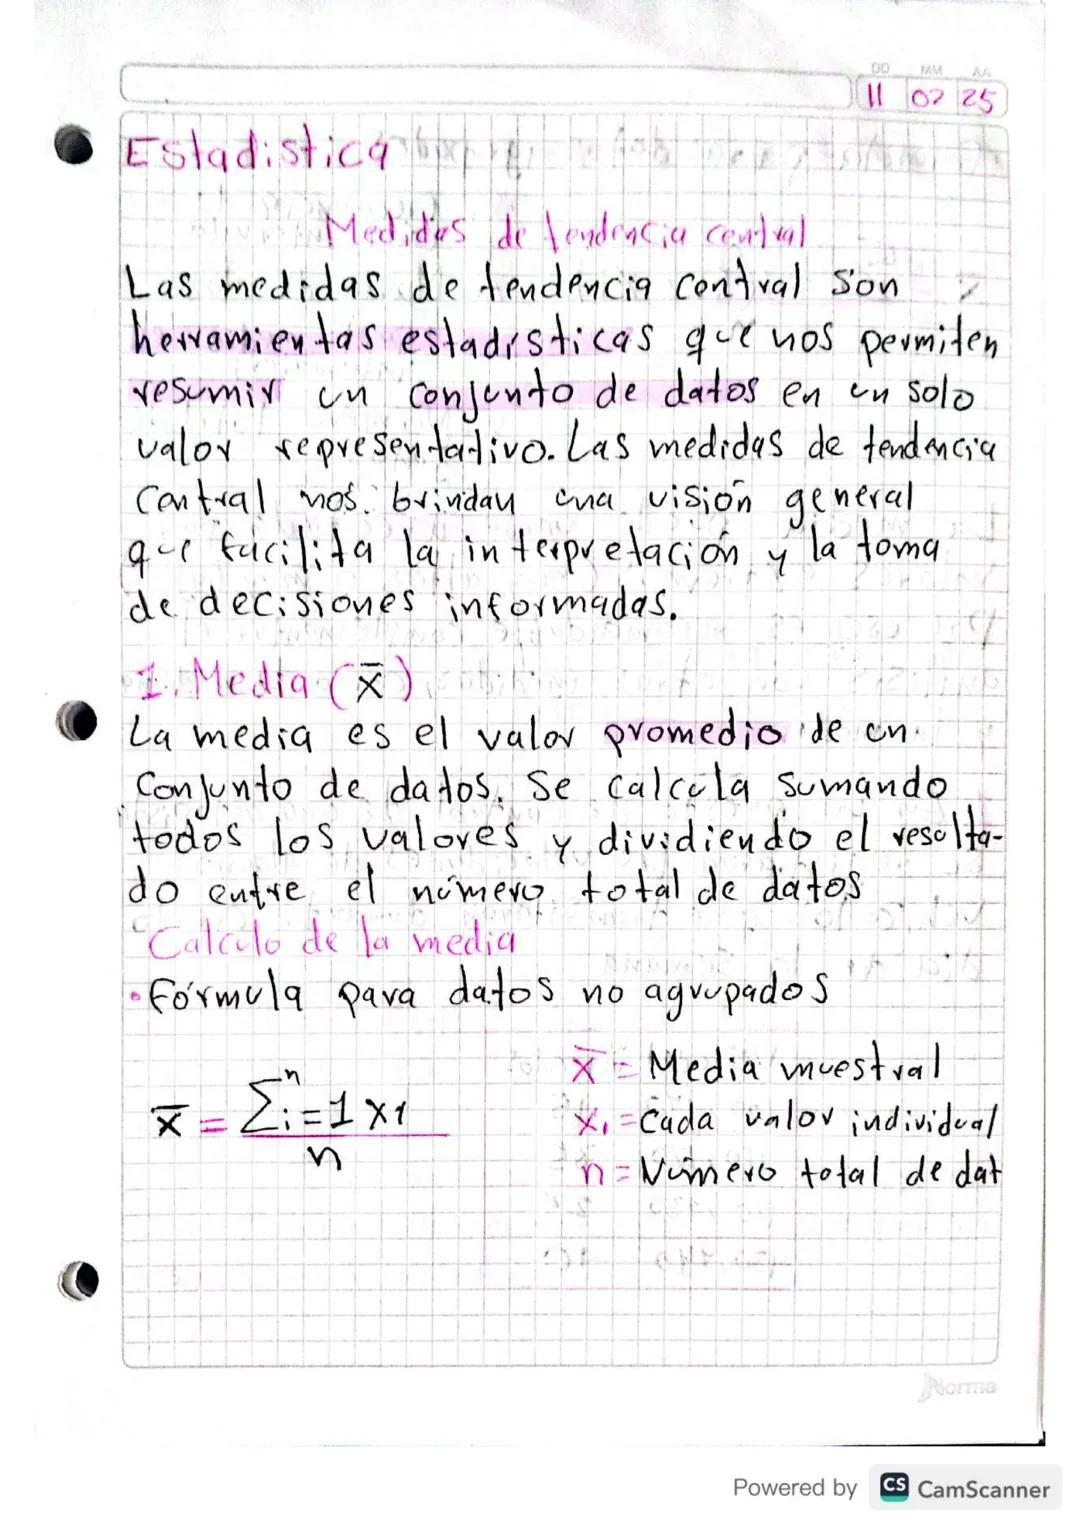 DD MM AA
11 02 25
Estadistica
Medidas de tendencia central
Las medidas de tendencia central son
herramientas estadísticas que nos permiten
resumir un conjunto de datos en un solo
valor representativo. Las medidas de tendencia
central nos brindan una visión general
que facilita la interpretación y la toma
de decisiones informadas.
1. Media (x̄)
La media es el valor promedio de un
conjunto de datos. Se calcula sumando
todos los valores y dividiendo el resulta-
do entre el número total de datos
Calculo de la media
• Fórmula para datos no agrupados
x̄ = ∑ⁿi=1 x1 / n
x̄ = Media muestral
x₁ = Cada valor individual
n = Número total de dat
Norma
Powered by CS CamScanner